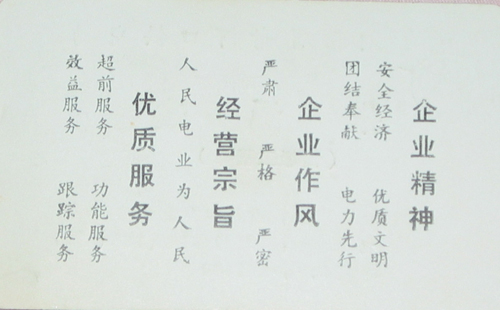 企业精神
安全经济 优质文明
团结奉献 电力先行
企业作风
严肃 严格 严密
经营宗旨
人民电业为人民
优质服务
超前服务 功能服务
效益服务 跟踪服务